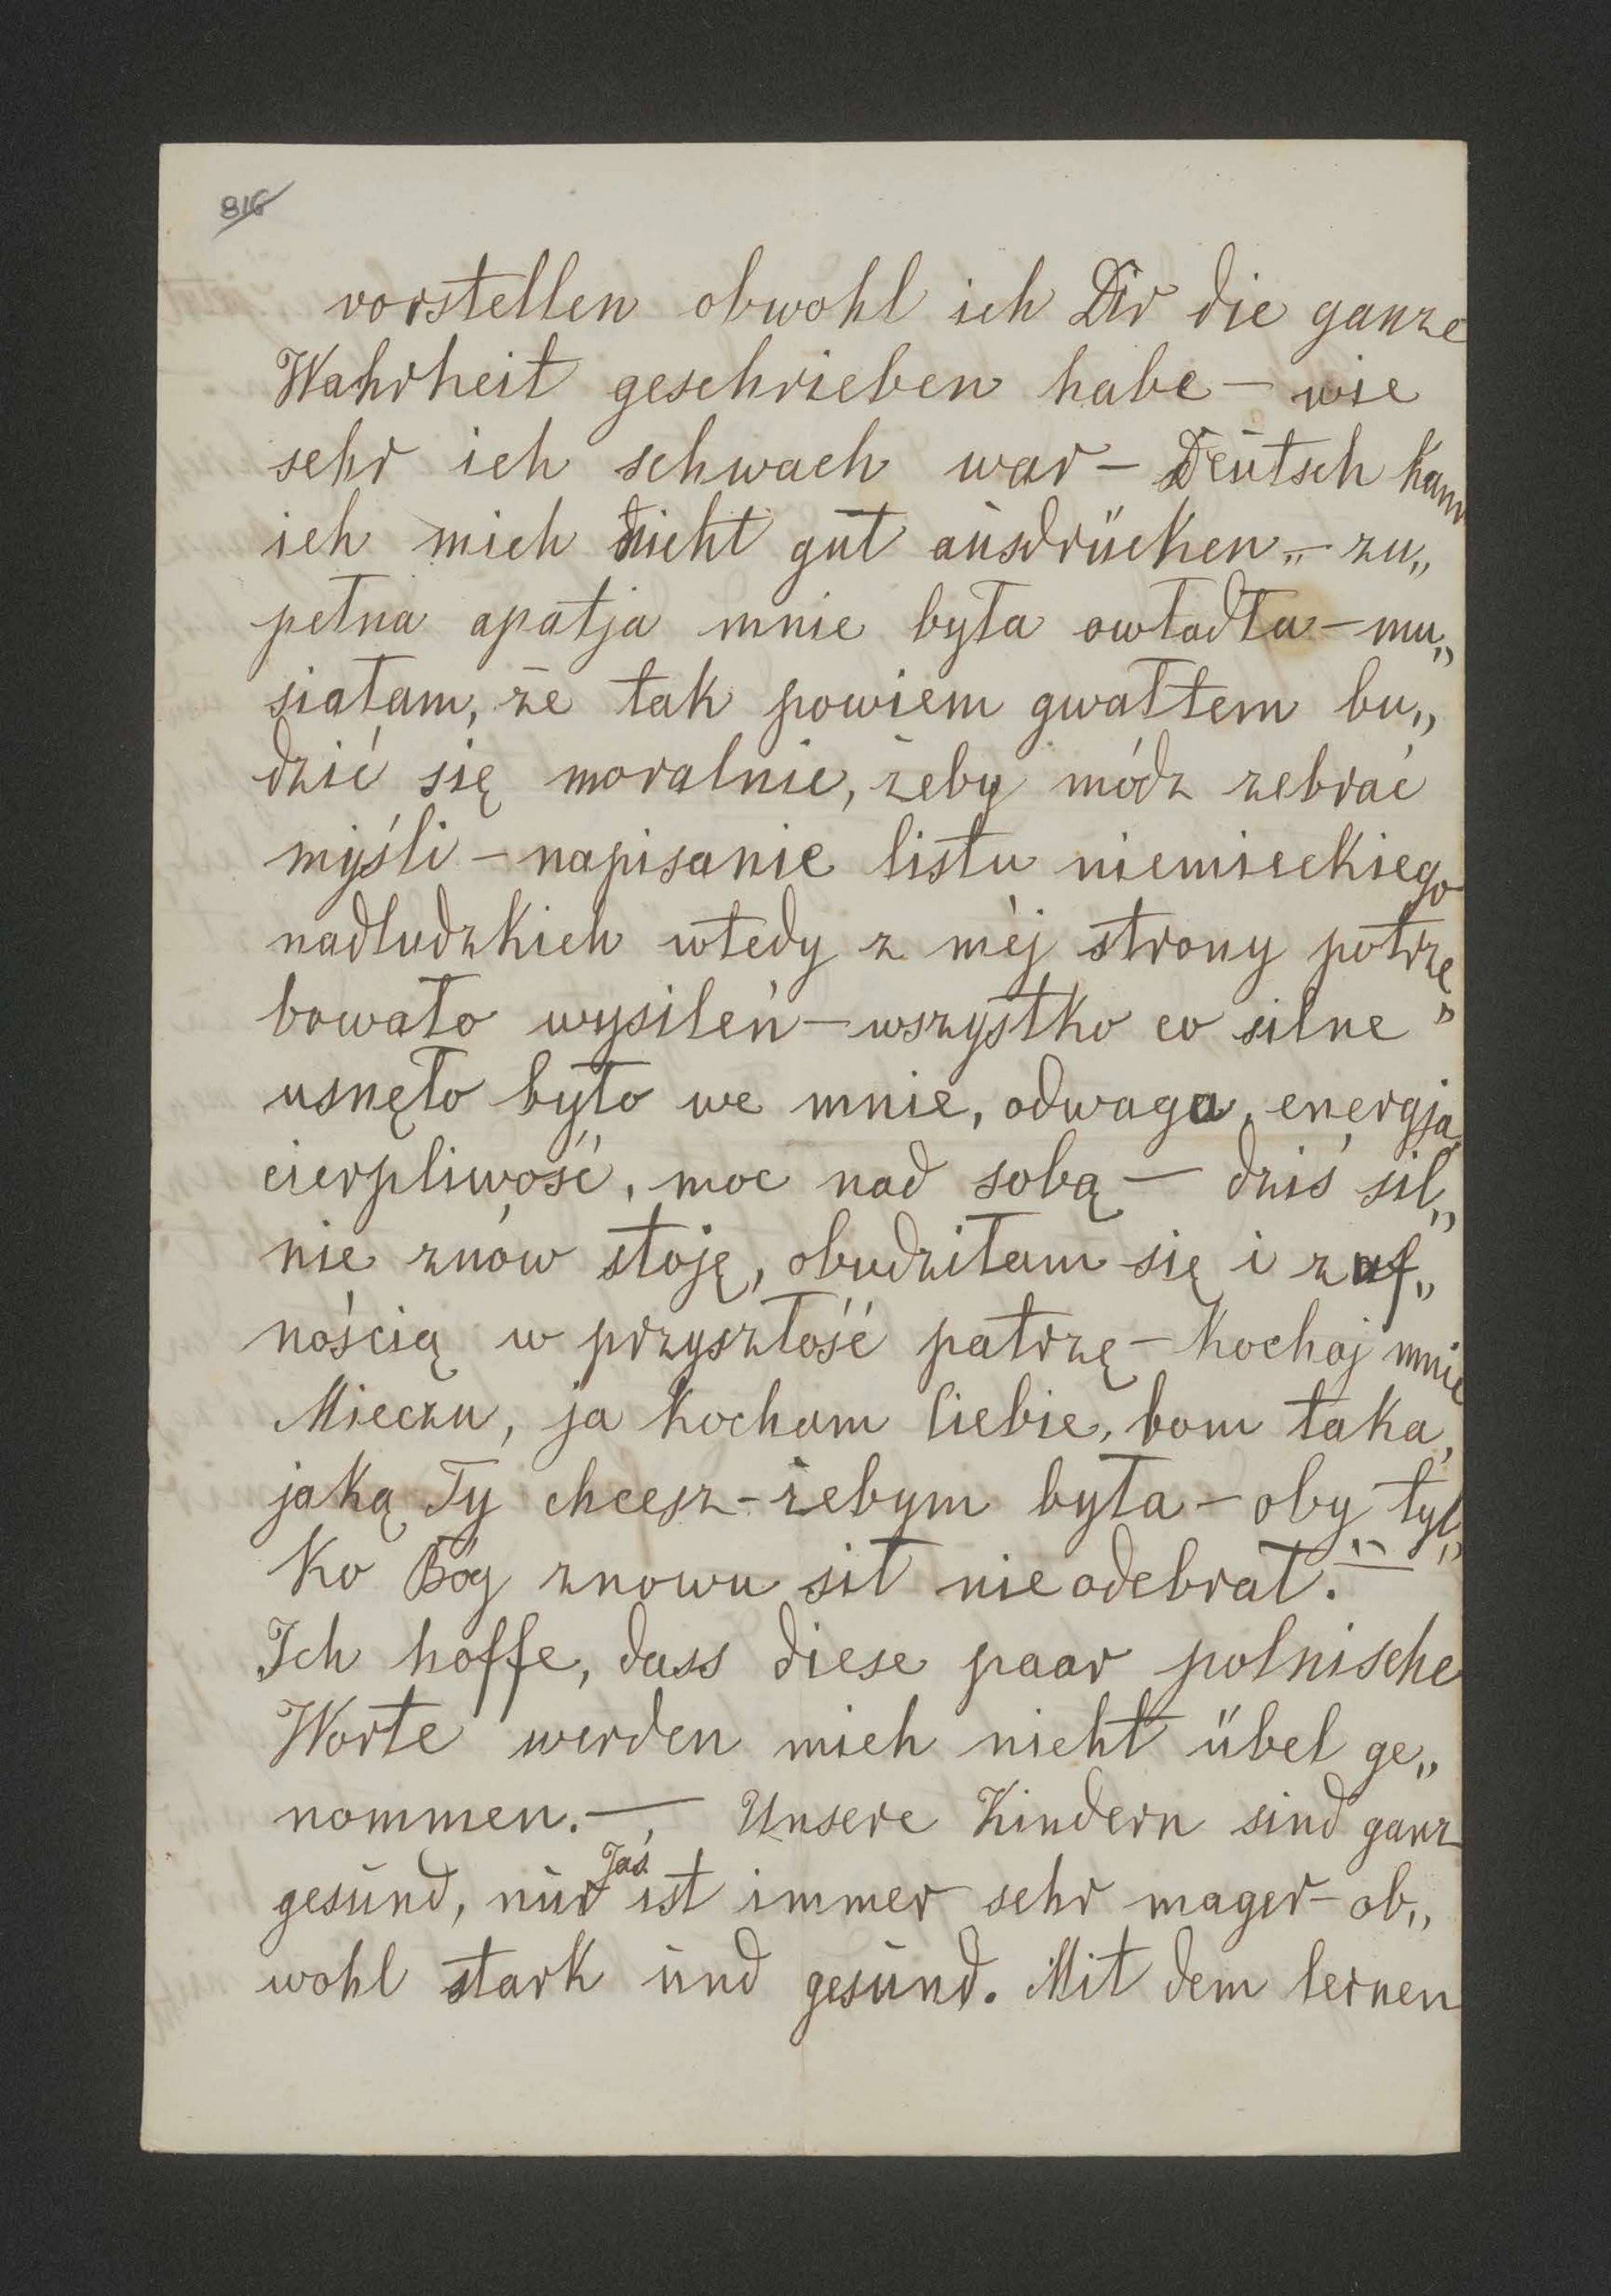 816
vorstellen obwohl ich Dir die ganze
Wahrheit geschrieben habe – wie
sehr ich schwach war – Deutsch kann
ich mich nicht gut ausdrücken „ – zu„
pełna apatja mnie była owładła – mu„
siałam, że tak powiem gwałtem bu„
dzić się moralnie, żeby módz zebrać
myśli – napisanie listu niemieckiego
nadludzkich wtedy z méj strony potrze„
bowało wysileń – wszystko co silne
usnęło było we mnie, odwaga, energja,
cierpliwość, moc nad sobą – dziś sil„
nie znów stoję, obudziłam się i z uf„
nością w przyszłość patrzę – Kochaj mnie
Mieczu, ja Kocham Ciebie, bom taka,
jaką Ty chcesz – żebym była – oby tyl„
ko Bóg znowu sił nie odebrał. „ –
Ich hoffe, dass diese paar polnische
Worte werden mich nicht übel ge„
nommen. – Unsere Kindern sind ganz
gesund, nur Jaś ist immer sehr mager – ob„
wohl stark und gesund. Mit dem lernen